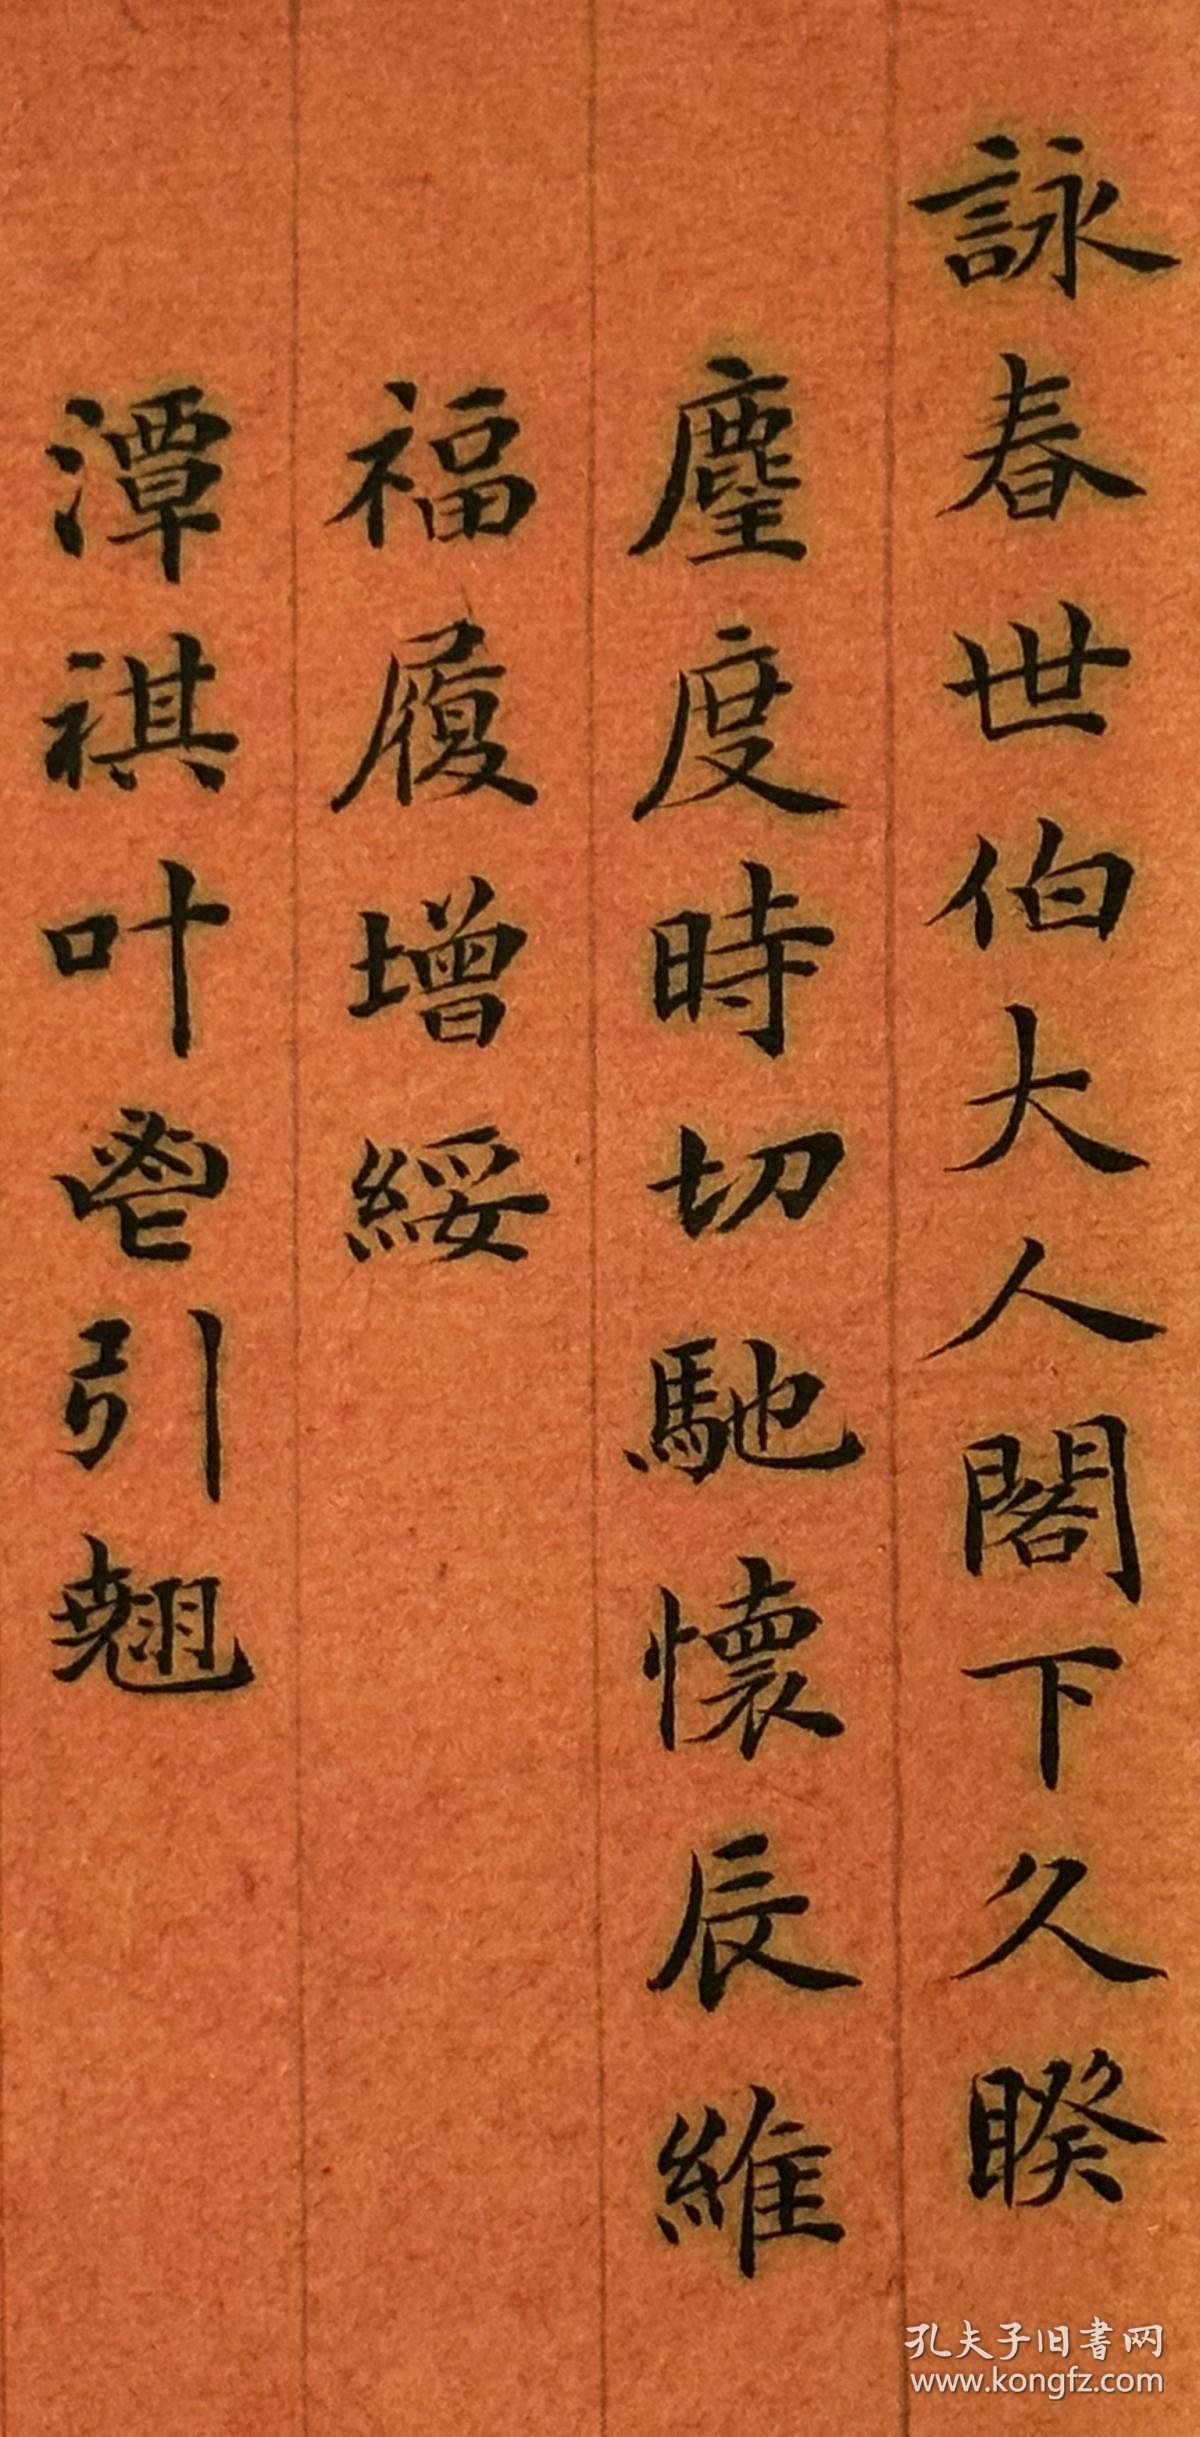 詠春世伯大人閣下久睽
麈度時切馳懷辰維
福履增綏
潭祺叶鬯引翹
孔夫子旧書网
www.kongfz.com